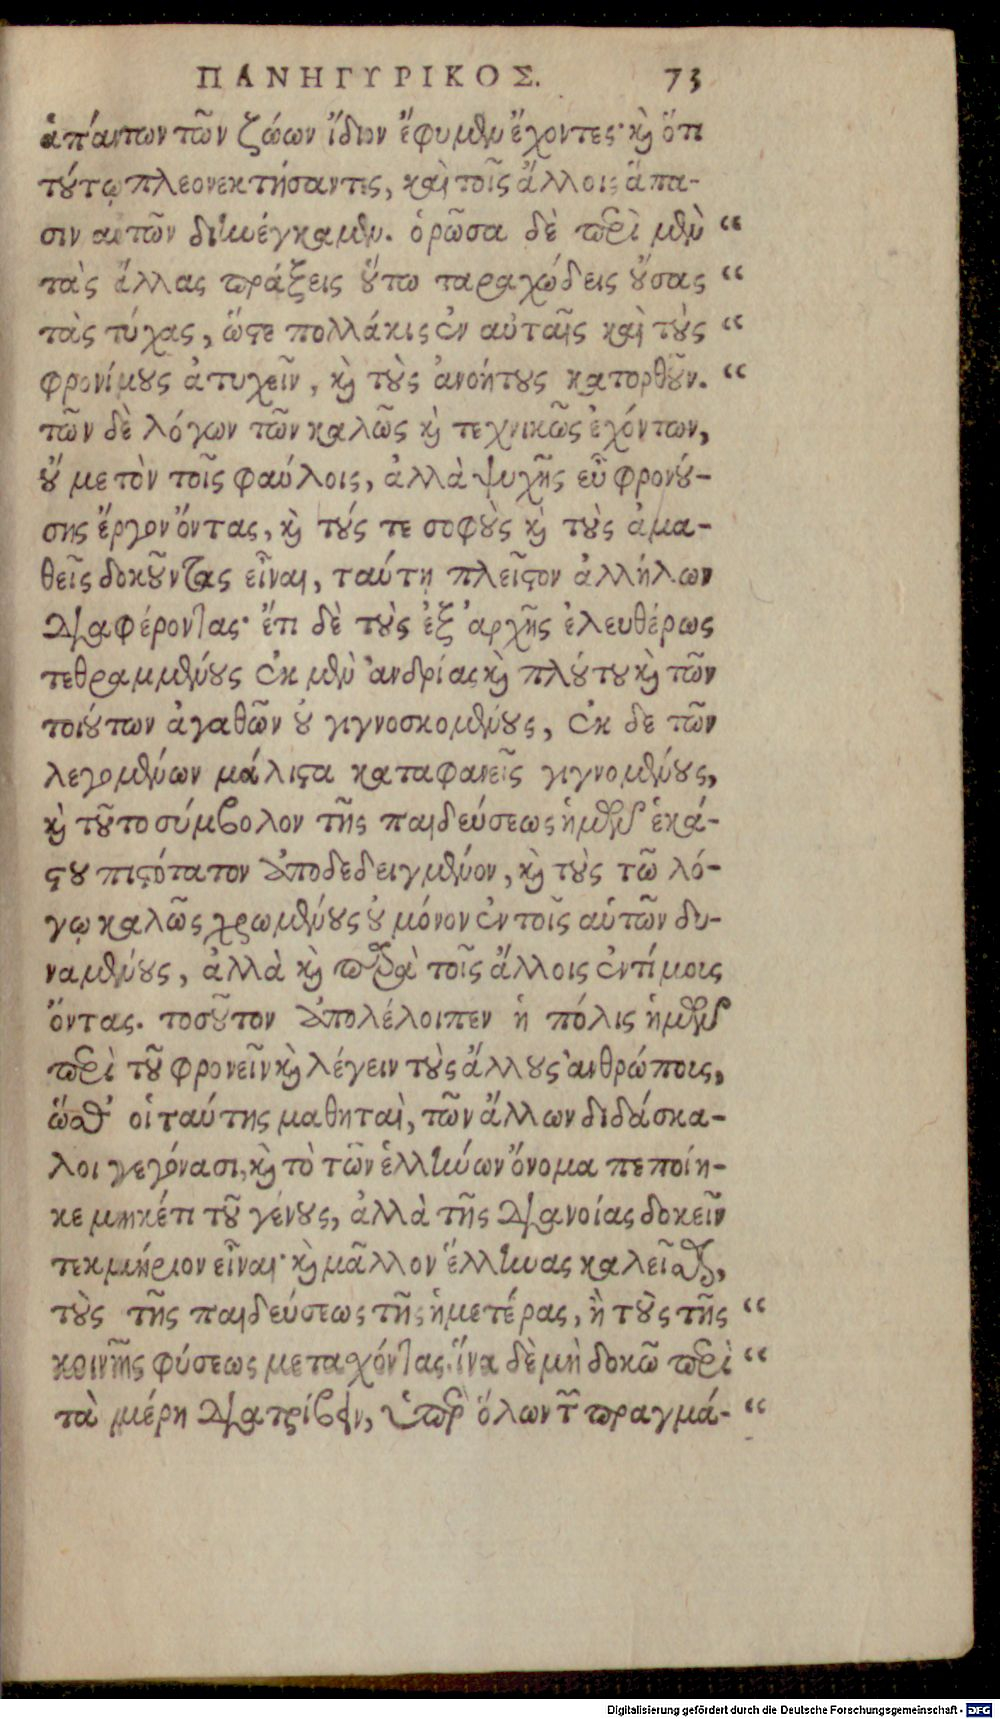 ΠΑΝΗΓΥΡΙΚΟΣ. 73
ἁπάντων τῶν ζώων ἴδιον ἔφυμεν ἔχοντες· καὶ ὅτι
τούτῳ πλεονεκτήσαντες, καὶ τοῖς ἄλλοις ἅπα-
σιν αὐτῶν διηνέγκαμεν. ὁρῶσα δὲ περὶ μὲν “
τὰς ἄλλας πράξεις οὕτω ταραχώδεις οὔσας “
τὰς τύχας, ὥστε πολλάκις ἐν αὐταῖς καὶ τοὺς “
φρονίμους ἀτυχεῖν, καὶ τοὺς ἀνοήτους κατορθοῦν. “
τῶν δὲ λόγων τῶν καλῶς καὶ τεχνικῶς ἐχόντων,
οὐ μετὸν τοῖς φαύλοις, ἀλλὰ ψυχῆς εὖ φρονού-
σης ἔργον ὄντας, καὶ τούς τε σοφοὺς καὶ τοὺς ἀμα-
θεῖς δοκοῦντας εἶναι, ταύτῃ πλεῖστον ἀλλήλων
διαφέροντας· ἔτι δὲ τοὺς ἐξ ἀρχῆς ἐλευθέρως
τεθραμμένους ἐκ μὲν ἀνδρίας καὶ πλούτου καὶ τῶν
τοιούτων ἀγαθῶν οὐ γιγνοσκομένους, ἐκ δε τῶν
λεγομένων μάλιστα καταφανεῖς γιγνομένους,
καὶ τοῦτο σύμβολον τῆς παιδεύσεως ἡμῶν ἑκά-
στου πιστότατον ἀποδεδειγμένον, καὶ τοὺς τῶ λό-
γῳ καλῶς χρωμένους οὐ μόνον ἐν τοῖς αὑτῶν δυ-
ναμένους, ἀλλὰ καὶ παρὰ τοῖς ἄλλοις ἐντίμους
ὄντας. τοσοῦτον ἀπολέλοιπεν ἡ πόλις ἡμῶν
περὶ τοῦ φρονεῖν καὶ λέγειν τοὺς ἄλλους ἀνθρώπους,
ὥσθ’ οἱ ταύτης μαθηταὶ, τῶν ἄλλων διδάσκα-
λοι γεγόνασι, καὶ τὸ τῶν ἑλλήνων ὄνομα πεποίη-
κε μηκέτι τοῦ γένους, ἀλλὰ τῆς διανοίας δοκεῖν
τεκμήριον εἶναι· καὶ μᾶλλον ἕλληνας καλεῖσθαι,
τοὺς τῆς παιδεύσεως τῆς ἡμετέρας, ἢ τοὺς τῆς “
κοινῆς φύσεως μετασχόντας. ἵνα δὲ μὴ δοκῶ περὶ “
τὰ μέρη διατρίβειν, ὑπὲρ ὅλων τῶν πραγμά- “
Digitalisierung gefördert durch die Deutsche Forschungsgemeinschaft - DFG